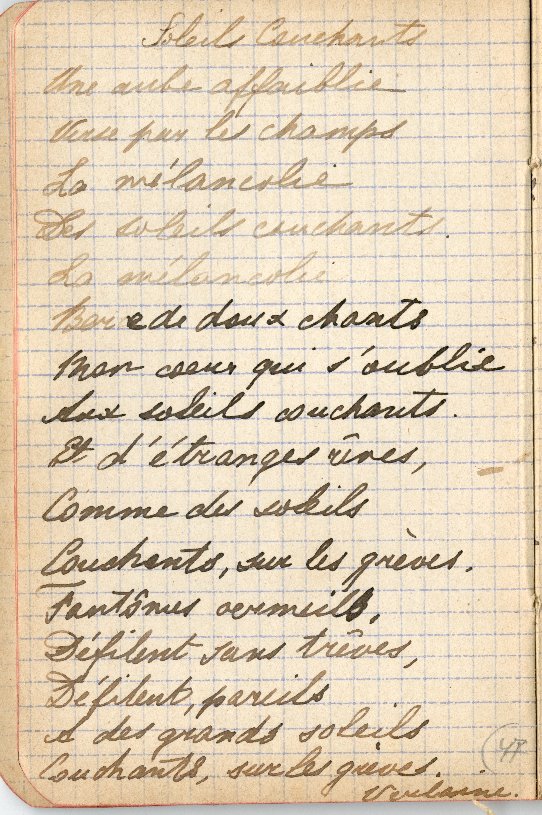 Soleils Couchants
Une aube affaiblie
Verse par les champs
La mélancolie
Des soleils couchants.
La mélancolie
Berce de doux chants
Mon coeur qui s'oublie
Aux soleils couchants.
Et d'étranges rêves,
Comme des soleils
Couchants, sur les grèves.
Fantômes vermeils,
Défilent sans trêves,
Défilent, pareils
A des grands soleils
Couchants, sur les grèves.
Verlaine.
47